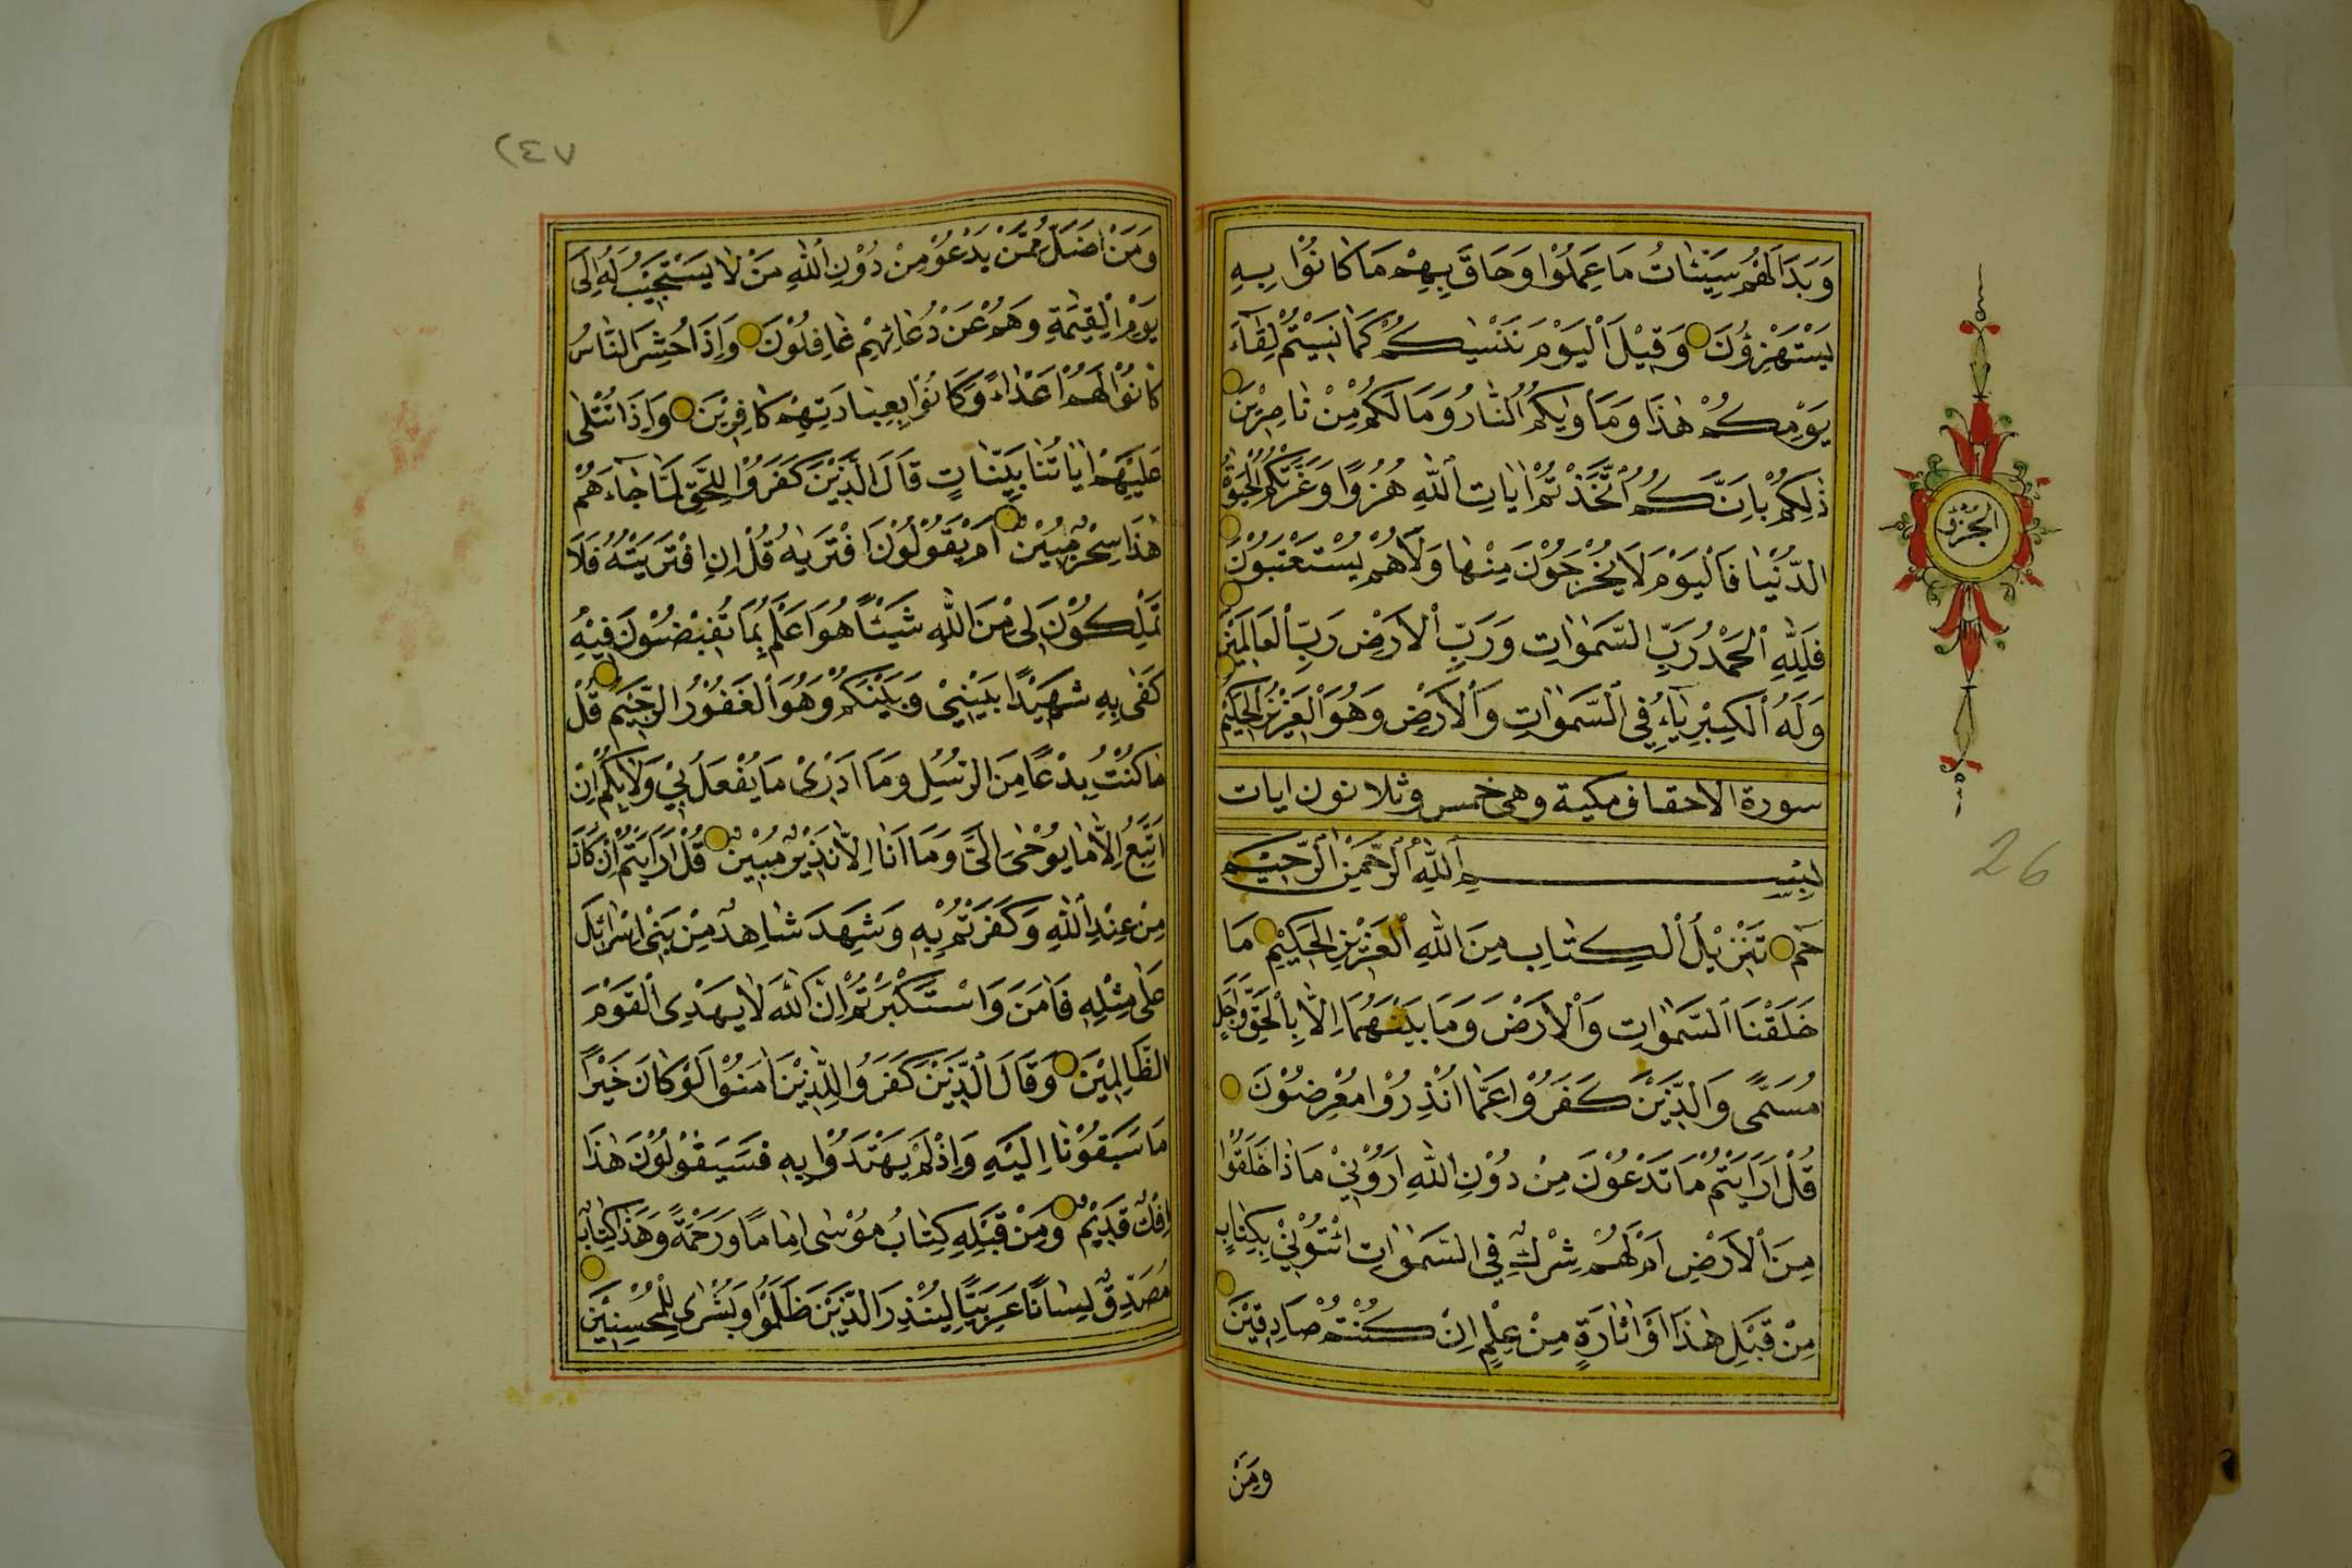 وَبَدَا لَهُمْ سَيِّئَاتُ مَا عَمِلُوْا وَحَاقَ بِهِمْ مَا كَانُوْا بِهِ
يَسْتَهْزِؤُنَ وَقِيْلَ الْيَوْمَ نَنْسٰيكُمْ كَمَا نَسِيْتُمْ لِقَآءَ
يَوْمِكُمْ هٰذَا وَمَأْوٰيكُمُ النَّارُ وَمَا لَكُمْ مِنْ نَاصِرِيْنَ
ذٰلِكُمْ بِاَنَّكُمُ اتَّخَذْتُمْ اٰيَاتِ اللّٰهِ هُزُوًا وَغَرَّتْكُمُ الْحَيٰوةُ
الدُّنْيَا فَالْيَوْمَ لَا يُخْرَجُوْنَ مِنْهَا وَلَا هُمْ يُسْتَعْتَبُوْنَ
فَلِلّٰهِ الْحَمْدُ رَبِّ السَّمٰوَاتِ وَرَبِّ الْاَرْضِ رَبِّ الْعَالَمِيْنَ
وَلَهُ الْكِبْرِيَآءُ فِي السَّمٰوَاتِ وَالْاَرْضِ وَهُوَ الْعَزِيْزُ الْحَكِيْمُ
الجزؤ
سورة الاحقاف مكية وهى خمس وثلاثون ايات
26
بِسْمِ اللّٰهِ الرَّحْمٰنِ الرَّحِيْمِ
حٰم تَنْزِيْلُ الْكِتَابِ مِنَ اللّٰهِ الْعَزِيْزِ الْحَكِيْمِ مَا
خَلَقْنَا السَّمٰوَاتِ وَالْاَرْضَ وَمَا بَيْنَهُمَا اِلَّا بِالْحَقِّ وَاَجَلٍ
مُسَمًّى وَالَّذِيْنَ كَفَرُوْا عَمَّا اُنْذِرُوْا مُعْرِضُوْنَ
قُلْ اَرَاَيْتُمْ مَا تَدْعُوْنَ مِنْ دُوْنِ اللّٰهِ اَرُوْنِيْ مَاذَا خَلَقُوْا
مِنَ الْاَرْضِ اَمْ لَهُمْ شِرْكٌ فِي السَّمٰوَاتِ ائْتُوْنِيْ بِكِتَابٍ
مِنْ قَبْلِ هٰذَا اَوْ اَثَارَةٍ مِنْ عِلْمٍ اِنْ كُنْتُمْ صَادِقِيْنَ
وَمَنْ
٢٤٧
وَمَنْ اَضَلُّ مِمَّنْ يَدْعُوْ مِنْ دُوْنِ اللّٰهِ مَنْ لَا يَسْتَجِيْبُ لَهُ اِلٰى
يَوْمِ الْقِيٰمَةِ وَهُمْ عَنْ دُعَائِهِمْ غَافِلُوْنَ وَاِذَا حُشِرَ النَّاسُ
كَانُوْا لَهُمْ اَعْدَاءً وَكَانُوْا بِعِبَادَتِهِمْ كَافِرِيْنَ وَاِذَا تُتْلٰى
عَلَيْهِمْ اٰيَاتُنَا بَيِّنَاتٍ قَالَ الَّذِيْنَ كَفَرُوْا لِلْحَقِّ لَمَّا جَآءَهُمْ
هٰذَا سِحْرٌ مُبِيْنٌ اَمْ يَقُوْلُوْنَ افْتَرٰيهُ قُلْ اِنِ افْتَرَيْتُهُ فَلَا
تَمْلِكُوْنَ لِيْ مِنَ اللّٰهِ شَيْئًا هُوَ اَعْلَمُ بِمَا تُفِيْضُوْنَ فِيْهِ
كَفٰى بِهِ شَهِيْدًا بَيْنِيْ وَبَيْنَكُمْ وَهُوَ الْغَفُوْرُ الرَّحِيْمُ قُلْ
مَا كُنْتُ بِدْعًا مِنَ الرُّسُلِ وَمَا اَدْرِىْ مَا يُفْعَلُ بِيْ وَلَا بِكُمْ اِنْ
اَتَّبِعُ اِلَّا مَا يُوْحٰى اِلَيَّ وَمَا اَنَا اِلَّا نَذِيْرٌ مُبِيْنٌ قُلْ اَرَاَيْتُمْ اِنْ كَانَ
مِنْ عِنْدِ اللّٰهِ وَكَفَرْتُمْ بِهِ وَشَهِدَ شَاهِدٌ مِنْ بَنِيْ اِسْرَائِلَ
عَلٰى مِثْلِهِ فَاٰمَنَ وَاسْتَكْبَرْتُمْ اِنَّ اللّٰهَ لَا يَهْدِى الْقَوْمَ
الظَّالِمِيْنَ وَقَالَ الَّذِيْنَ كَفَرُوْا لِلَّذِيْنَ اٰمَنُوْا لَوْ كَانَ خَيْرًا
مَا سَبَقُوْنَا اِلَيْهِ وَاِذْ لَمْ يَهْتَدُوْا بِهِ فَسَيَقُوْلُوْنَ هٰذَا
اِفْكٌ قَدِيْمٌ وَمِنْ قَبْلِهِ كِتَابُ مُوْسٰى اِمَامًا وَرَحْمَةً وَهٰذَا كِتَابٌ
مُصَدِّقٌ لِسَانًا عَرَبِيًّا لِيُنْذِرَ الَّذِيْنَ ظَلَمُوْا وَبُشْرٰى لِلْمُحْسِنِيْنَ